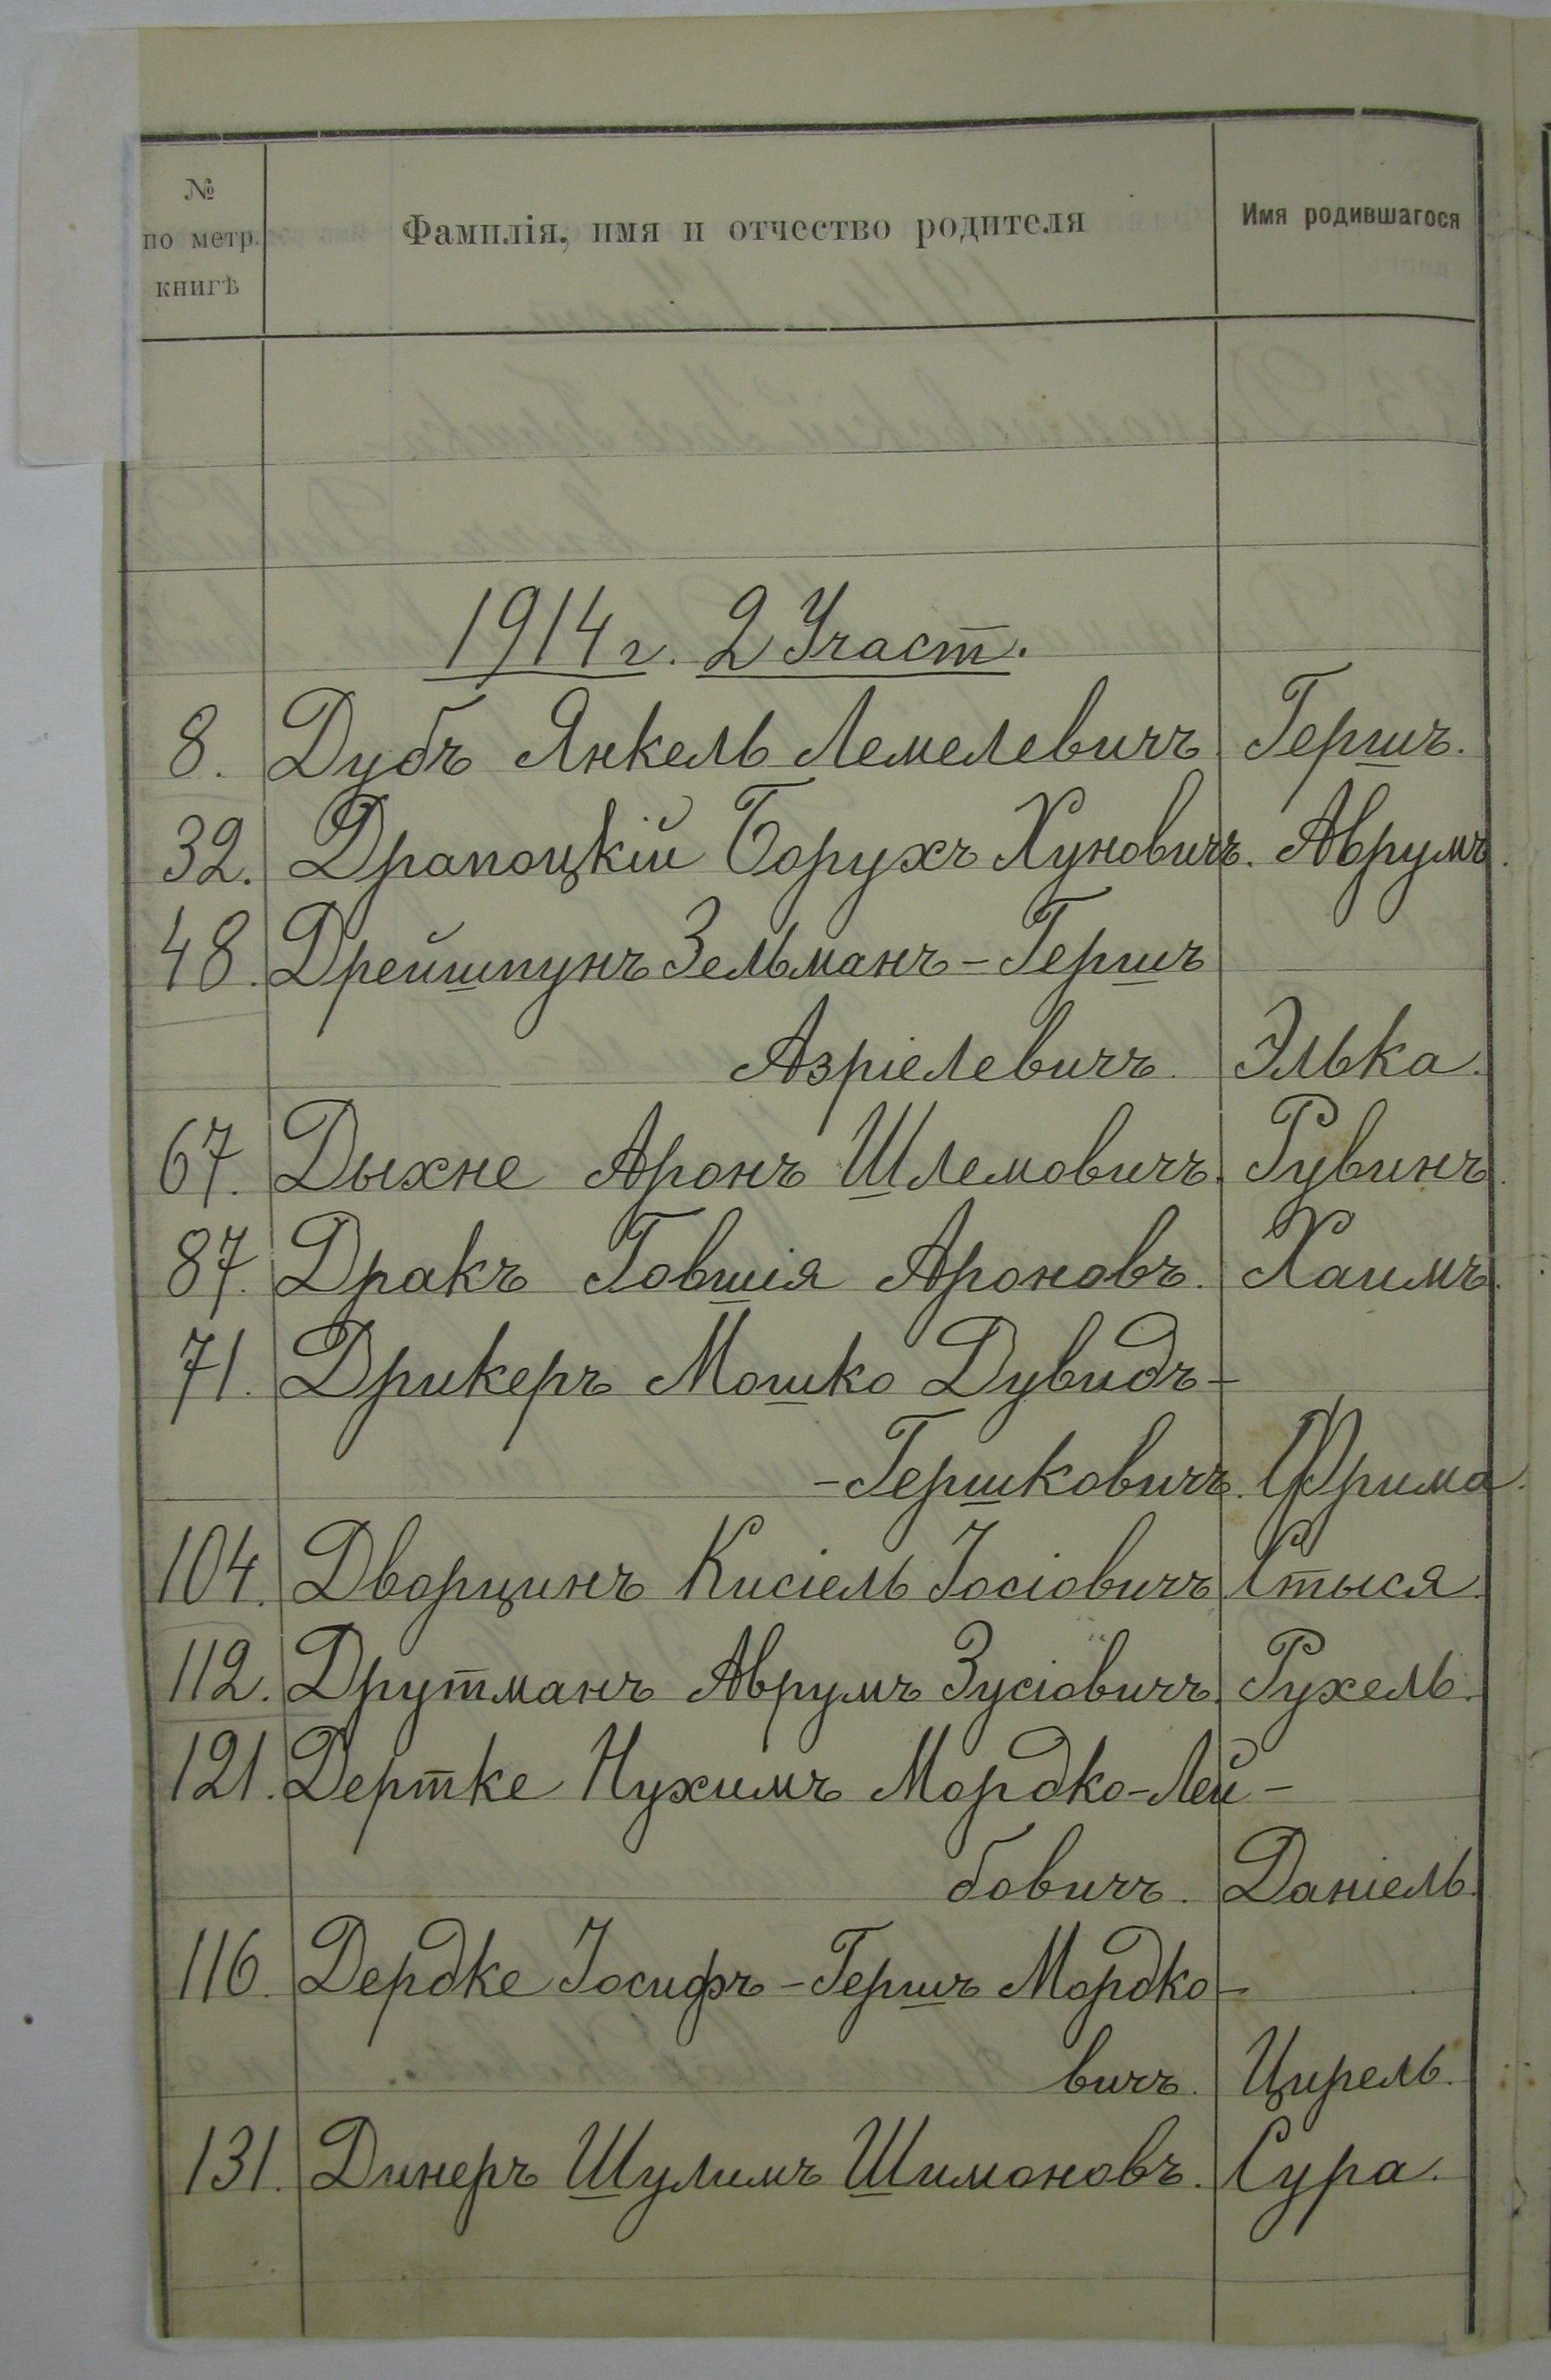 № по метр. книгѣ | Фамилія, имя и отчество родителя | Имя родившагося
1914 г. 2 Участ.
8. Дубъ Янкель Лемелевичъ. Гершъ.
32. Драпоцкій Борухъ Хуновичъ. Аврумъ.
48. Дрейшпунъ Зельманъ-Гершъ
Азріелевичъ. Элька.
67. Дыхне Аронъ Шлемовичъ. Рувинъ.
87. Дракъ Говшія Ароновъ. Хаимъ.
71. Дрикеръ Мошко Дувидъ-
-Гершковичъ. Фрима.
104. Дворцинъ Кисіель Іосіовичъ Стыся.
112. Друтманъ Аврумъ Зусіовичъ. Рухель.
121. Дертке Нухимъ Мордко-Лей-
бовичъ. Даніель.
116. Дердке Іосифъ-Гершъ Мордко-
вичъ. Цирель.
131. Динеръ Шулимъ Шимоновъ. Сура.